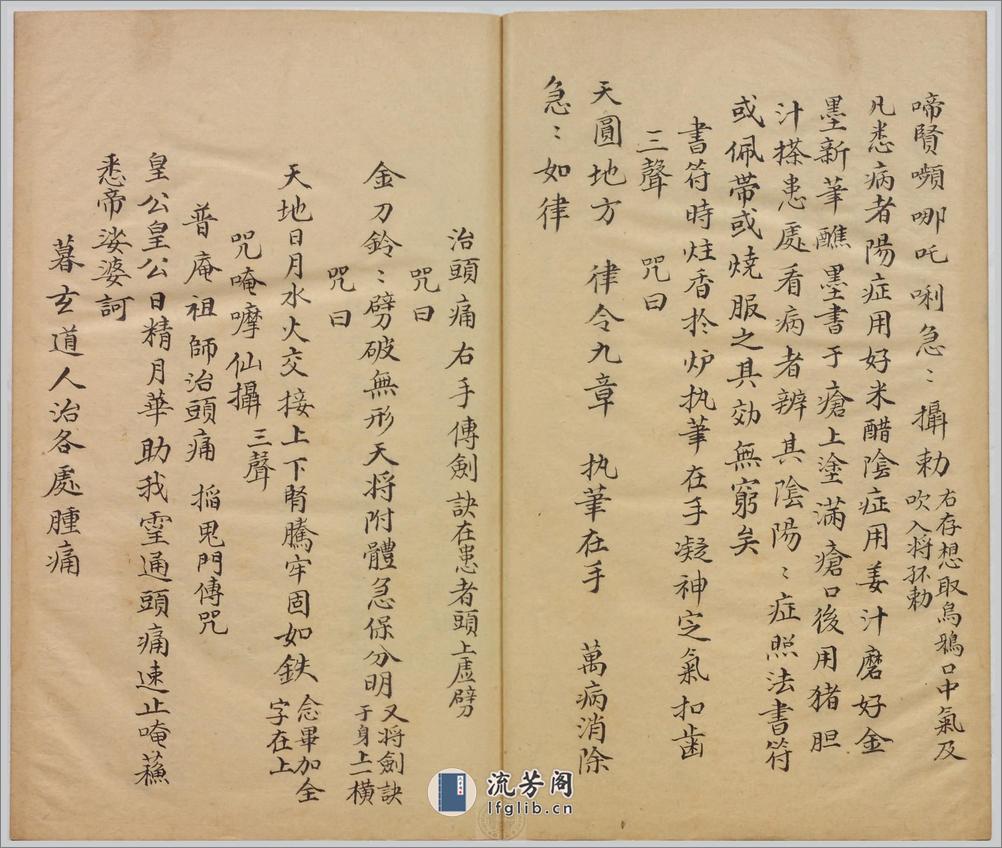 啼賢嚬哪吒唎急〻攝勅右存想取烏鴉口中氣及吹入将环勅
凡患病者陽症用好米醋陰症用姜汁磨好金
墨新筆醮墨書于瘡上塗滿瘡口後用猪胆
汁搽患處看病者辨其陰陽〻症照法書符
或佩帶或燒服之其効無窮矣
書符時炷香扵炉执筆在手凝神定氣扣齒
三聲 咒曰
天圓地方 律令九章 执筆在手 萬病消除
急〻如律
治頭痛右手傳劍訣在患者頭上虛劈
咒曰
金刀鈴〻劈破無形天将附體急保分明又将劍訣于身上一横
咒曰
天地日月水火交接上下腎騰牢固如鉄念畢加全字在上
咒唵嚤仙攝三聲
普庵祖師治頭痛 掐鬼門傳咒
皇公皇公日精月華助我靈通頭痛速止唵蘓
悉帝娑婆訶
暮玄道人治各處腫痛
流芳阁
lfglib.cn